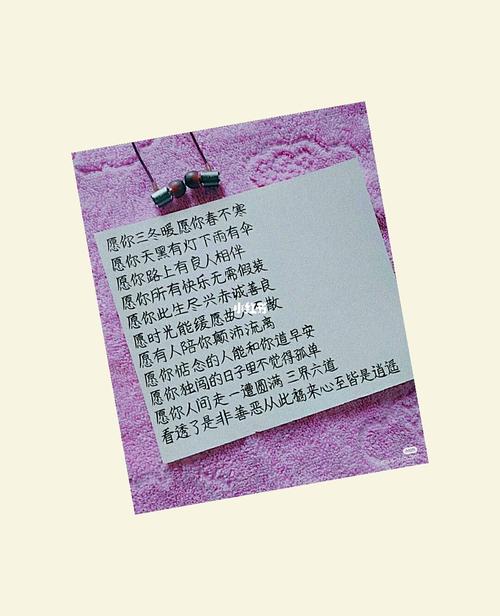 愿你三冬暖愿你春不寒
愿你天黑有灯下雨有伞
愿你路上有良人相伴
愿你所有快乐无需假装
愿你此生尽兴赤诚善良
愿时光能缓愿故 散
愿有人陪你颠沛流离
愿你惦念的人能和你道早安
愿你独闯的日子里不觉得孤单
愿你人间走一遭圆满 三界六道
看透了是非善恶从此 来心至皆是逍遥
小红书